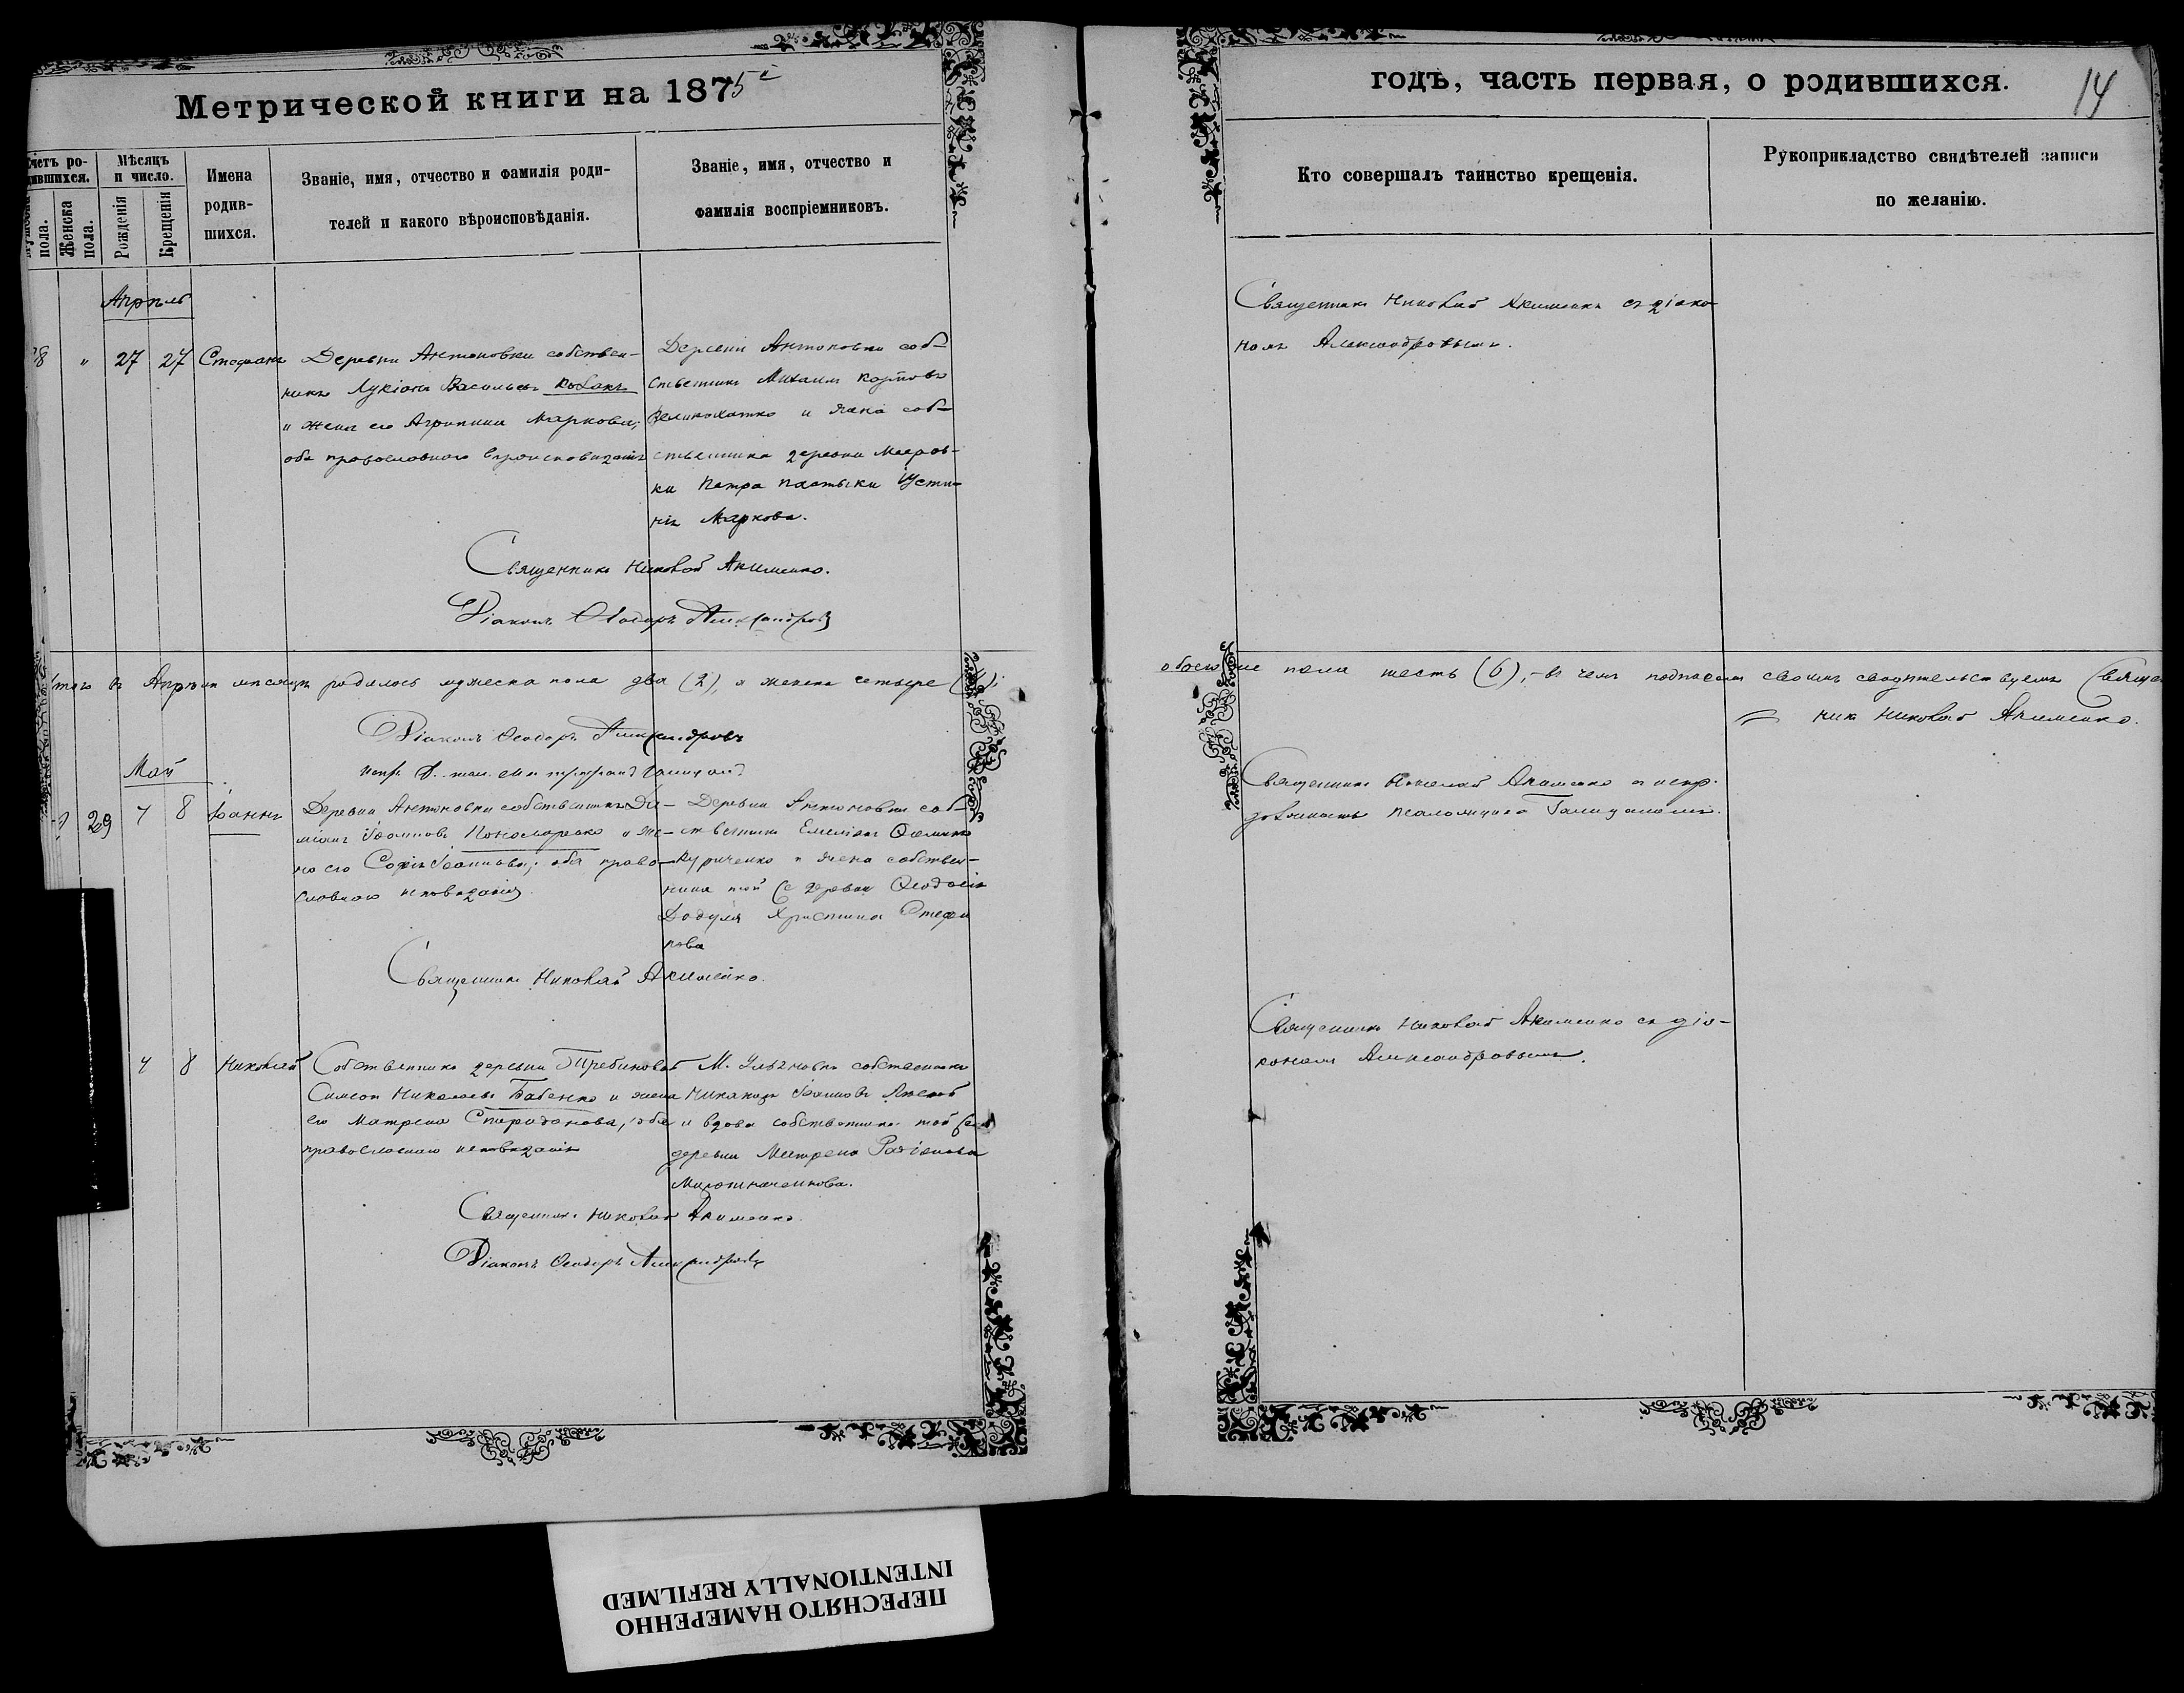 Метрической книги на 1875й
годъ, часть первая, о родившихся.
14
Счетъ ро-
дившихся.
Мѣсяцъ
и число.
Имена
родив-
шихся.
Званіе, имя, отчество и фамилія роди-
телей и какого вѣроисповѣданія.
Званіе, имя, отчество и
фамилія воспріемниковъ.
Кто совершалъ таинство крещенія.
Рукоприкладство свидѣтелей записи
по желанію.
пола.
Женска
пола.
Рожденія
Крещенія
Апрѣль
27 27 Стефанъ
Деревни Антоновки собствен-
никъ Лукіанъ Васильевъ
и жена его Агрипина Маркова;
оба православного вѣроисповѣданія
Деревни Антоновки соб-
ственникъ Михаилъ
и жена соб-
ственника деревни
ки Петра Усти-
нія Маркова.
Священникъ Николай Акименко.
Діаконъ Ѳеодоръ Александровъ
Священникъ Николай Акименко съ діако-
номъ Александровымъ.
Итого въ Апрѣлѣ мѣсяцѣ родилось мужеска пола два (2), а женска четыре
обоего же пола шесть (6), - въ чемъ подписомъ своимъ свидѣтельствуемъ Священ
никъ Николай Акименко.
Діаконъ Ѳеодоръ Александровъ
Май
29 7 8 Іоаннъ
Деревни Антоновки собственникъ Да-
міанъ Іоанновъ Пономаренко и же-
на его Софія Іоаннова; оба право-
славного исповѣданія
Деревни Антоновки соб-
ственникъ Емеліанъ
Куриченко и жена собствен-
ника той же деревни Ѳеодосія
Христина Стефа
нова
Священникъ Николай Акименко.
Священникъ Николай Акименко и испр.
должность псаломщика
7 8 Николай
Собственникъ деревни
Симеон Николаевъ Бабенко и жена
его Матрена Спиридонова, оба
православного исповѣданія
М. Ульяновки собственникъ
Іоанновъ
и вдова собственника той же
деревни Матрена
Мирошниченкова.
Священникъ Николай Акименко.
Діаконъ Ѳеодоръ Александровъ
Священникъ Николай Акименко съ діа-
кономъ Александровымъ.
ПЕРЕСНЯТО НАМЕРЕННО
INTENTIONALLY REFILMED